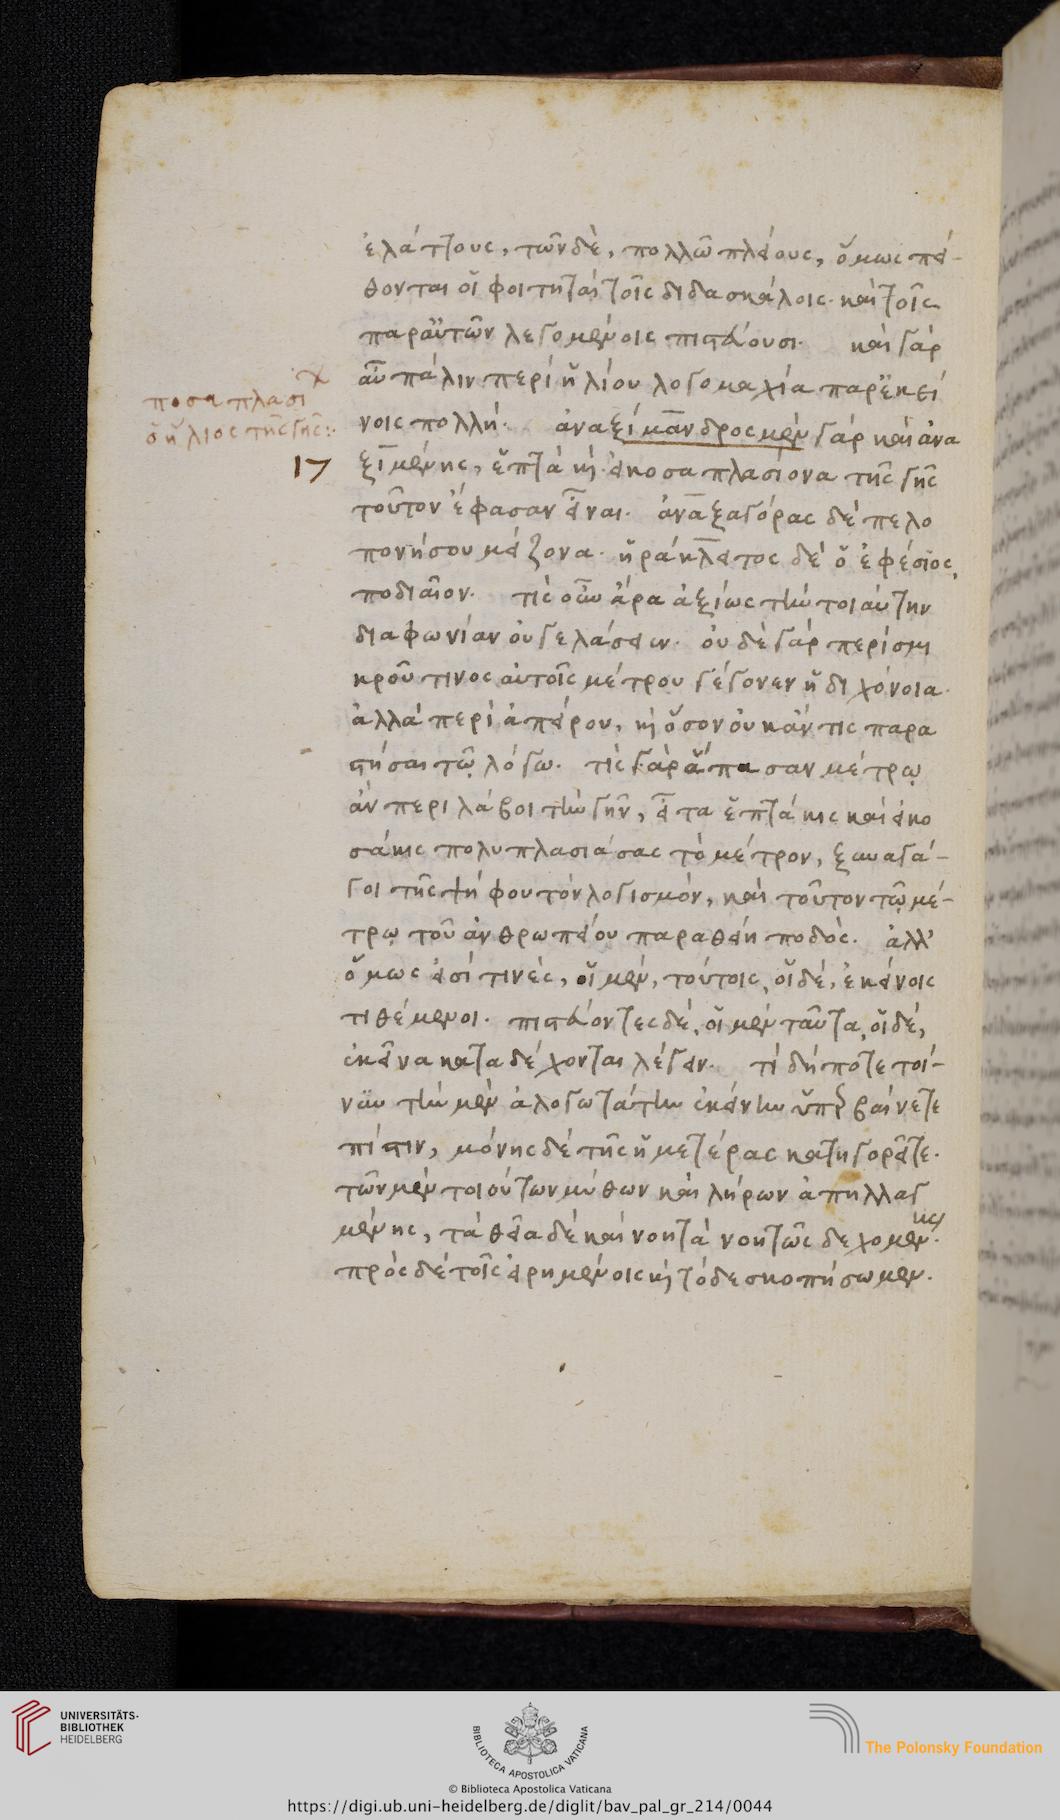 ἐλάττους, τῶν δὲ, πολλῶ πλείους, ὅμως πεί-
θονται οἱ φοιτηταὶ τοῖς διδασκάλοις· καὶ τοῖς
παρ' αὐτῶν λεγομένοις πιστεύουσι· καὶ γὰρ
αὖ πάλιν περὶ ἡλίου λογομαχία παρ' ἐκεί
νοις πολλή· ἀναξίμανδρος μὲν γὰρ καὶ ἀνα
ξιμένης, ἑπτὰ κὶ εἰκοσαπλασίονα τῆς γῆς
τοῦτον ἔφασαν εἶναι· ἀναξαγόρας δὲ πελο
πονήσου μείζονα· ἡράκλειτος δὲ ὁ ἐφέσιος,
ποδιαῖον· τίς οὖν ἄρα ἀξίως τὴν τοιαύτην
διαφωνίαν οὐ γελάσειν· οὐδὲ γὰρ περὶ σμι
κροῦ τινος αὐτοῖς μέτρου γέγονεν ἡ διχόνοια·
ἀλλὰ περὶ ἀπείρου, κὶ ὅσον οὐκ ἄν τις παρα
στήσαι τῷ λόγω· τίς γὰρ ἅπασαν μέτρῳ
ἂν περιλάβοι τὴν γῆν, εἶτα ἑπτάκις καὶ εἰκο
σάκις πολυπλασιάσας τὸ μέτρον, ξυναγά-
γοι τῆς ψήφου τὸν λογισμόν, καὶ τοῦτον τῷ μέ-
τρῳ τοῦ ἀνθρωπείου παραθείη ποδός· ἀλλ'
ὅμως εἰσί τινές, οἱ μέν, τούτοις, οἱ δέ, ἐκείνοις
τιθέμενοι· πιστεύοντες δέ, οἱ μὲν ταῦτα, οἱ δέ,
ἐκεῖνα καταδέχονται λέγειν· τί δήποτε τοί-
νυν τὴν μὲν ἀλογωτάτην ἐκείνην ὑπερβαίνετε
πίστιν, μόνης δὲ τῆς ἡμετέρας κατηγορεῖτε·
τῶν μὲν τοιούτων μύθων καὶ λήρων ἀπηλλαγ
μένης, τὰ θεῖα δὲ καὶ νοητὰ νοητῶς δεχομένης·
πρὸς δὲ τοῖς εἰρημένοις κὶ τόδε σκοπήσωμεν.
ποσαπλασι
ὁ ἥλιος τῆς γῆς:·
17
UNIVERSITÄTS-
BIBLIOTHEK
HEIDELBERG
BIBLIOTECA APOSTOLICA VATICANA
The Polonsky Foundation
© Biblioteca Apostolica Vaticana
https://digi.ub.uni-heidelberg.de/diglit/bav_pal_gr_214/0044